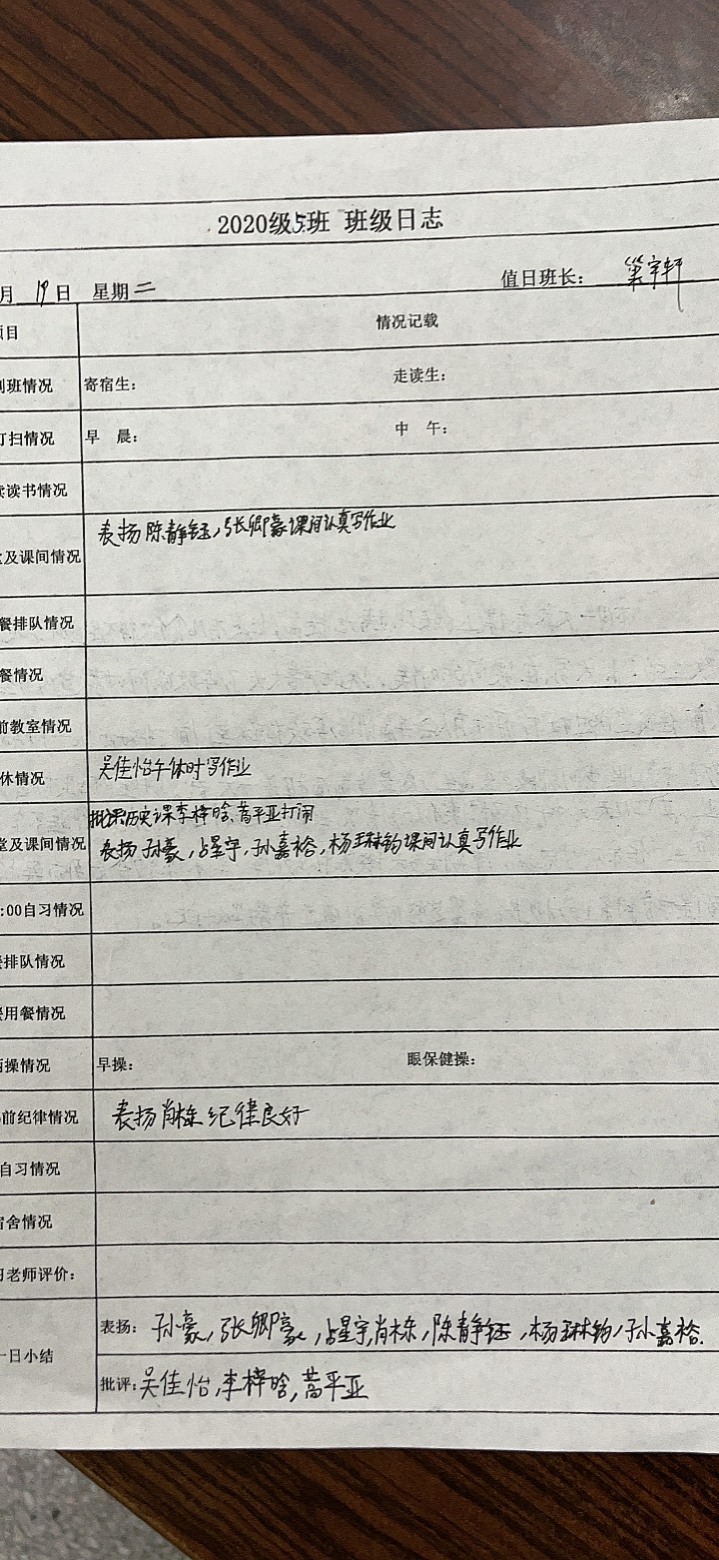 2020级5班 班级日志
月 19日 星期二 值日班长: 宇轩
项目 情况记载
到班情况 寄宿生: 走读生:
打扫情况 早 晨: 中 午:
读读书情况
堂及课间情况 表扬陈静钰,张卿豪课间认真写作业
餐排队情况
餐情况
前教室情况
休情况 吴佳怡午休时写作业
批评历史课李梓晗、蒿平亚打闹
堂及课间情况 表扬孙豪,占星宇,孙嘉裕,杨琳钧课间认真写作业
:00自习情况
餐排队情况
餐用餐情况
两操情况 早操: 眼保健操:
前纪律情况 表扬肖栋纪律良好
自习情况
宿舍情况
习老师评价:
一日小结 表扬: 孙豪,张卿豪,占星宇,肖栋,陈静钰,杨琳钧,孙嘉裕.
批评: 吴佳怡,李梓晗,蒿平亚